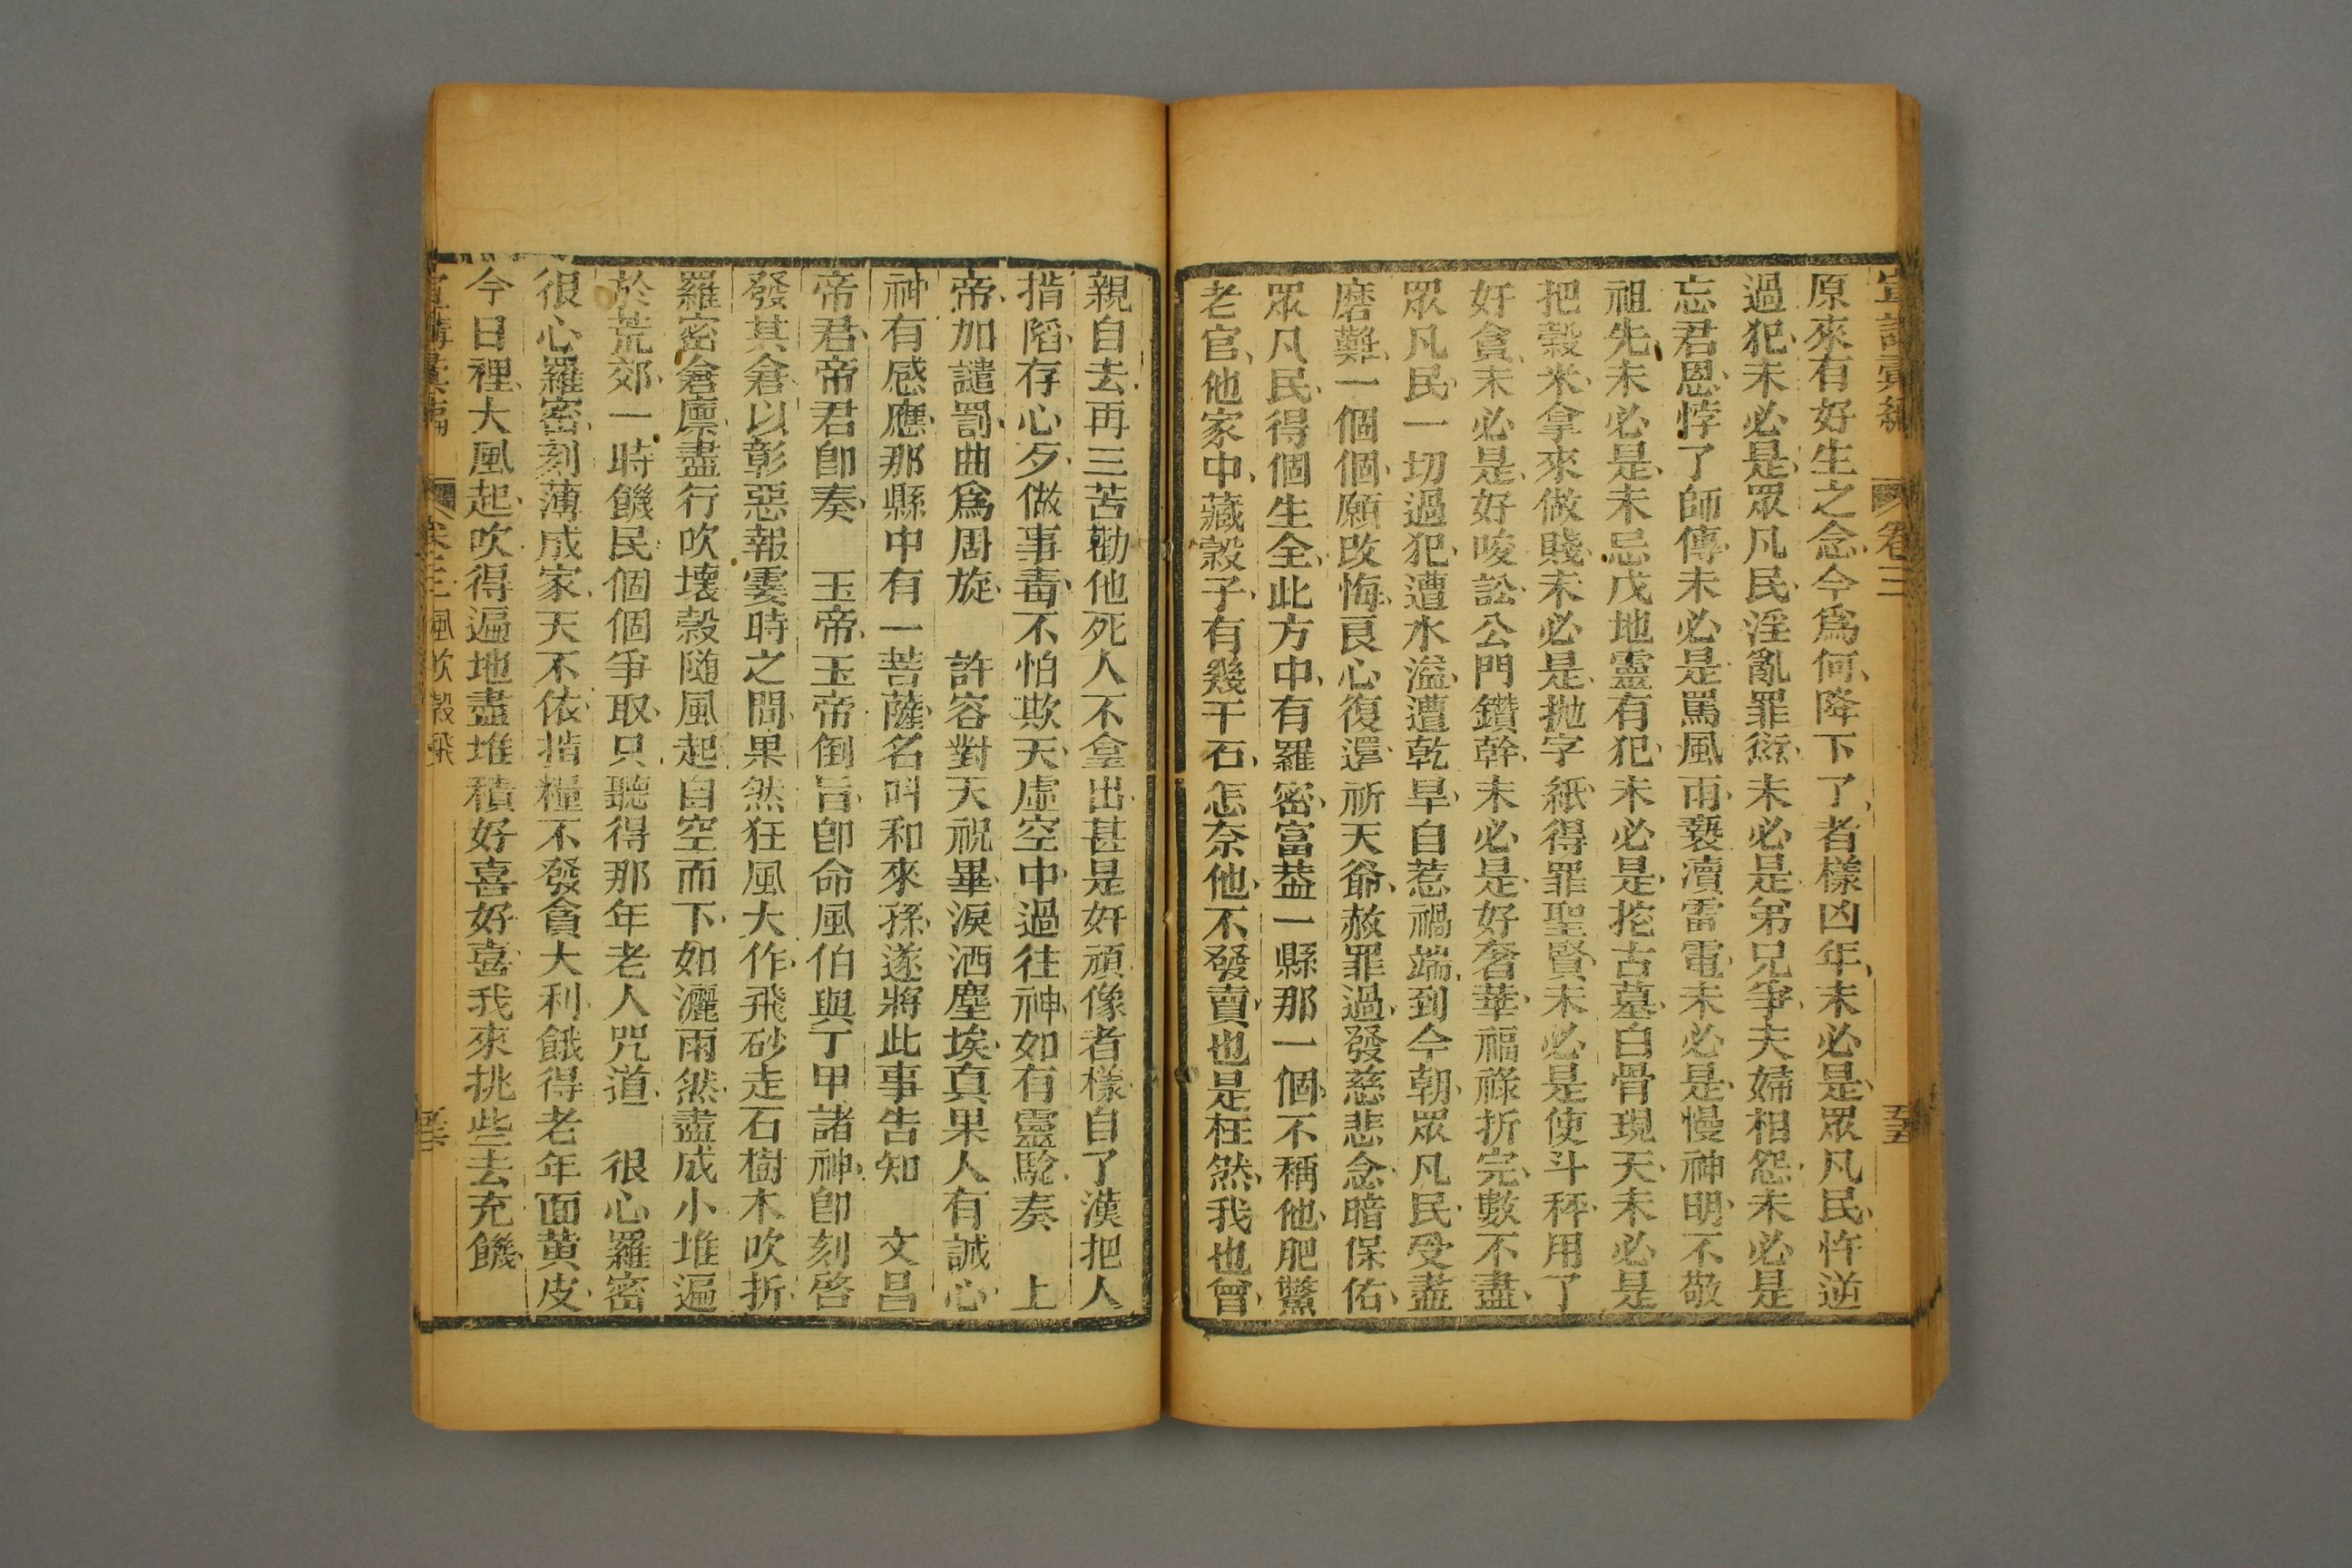 宣講彙編 卷三 五五
原來有好生之念今爲何降下了者樣凶年未必是眾凡民忤逆
過犯未必是眾凡民淫亂罪愆未必是弟兄爭夫婦相怨未必是
忘君恩悖了師傳未必是罵風雨褻瀆雷電未必是慢神明不敬
祖先未必是未忌戊地靈有犯未必是挖古墓白骨現天未必是
把穀米拿來做賤未必是拋字紙得罪聖賢未必是使斗秤用了
好貪未必是好唆訟公門鑽幹未必是好奢華福祿折完數不盡
眾凡民一切過犯遭水溢遭乾旱自惹禍端到今朝眾凡民受盡
磨難一個個願改悔良心復還祈天爺赦罪過發慈悲念暗保佑
眾凡民得個生全此方中有羅密富葢一縣那一個不稱他肥鱉
老官他家中藏穀子有幾千石怎奈他不發賣也是枉然我也曾
親自去再三苦勸他死人不拿出甚是奸頑像者樣自了漢把人
揹陷存心歹做事毒不怕欺天虛空中過往神如有靈驗奏 上
帝加譴罰曲爲周旋 許容對天祝畢淚洒塵埃真果人有誠心
神有感應那縣中有一菩薩名叫和來孫遂將此事告知 文昌
帝君帝君卽奏 玉帝玉帝倒旨卽命風伯與丁甲諸神卽刻啓
發其倉以彰惡報霎時之間果然狂風大作飛砂走石樹木吹折
羅密倉廪盡行吹壞穀随風起自空而下如灑雨然盡成小堆遍
於荒郊一時饑民個個爭取只聽得那年老人咒道 很心羅密
很心羅密刻薄成家天不依揹糧不發貪大利餓得老年面黄皮
今日裡大風起吹得遍地盡堆積好喜好喜我來挑些去充饑
宣講彙編 卷三 風吹穀飛